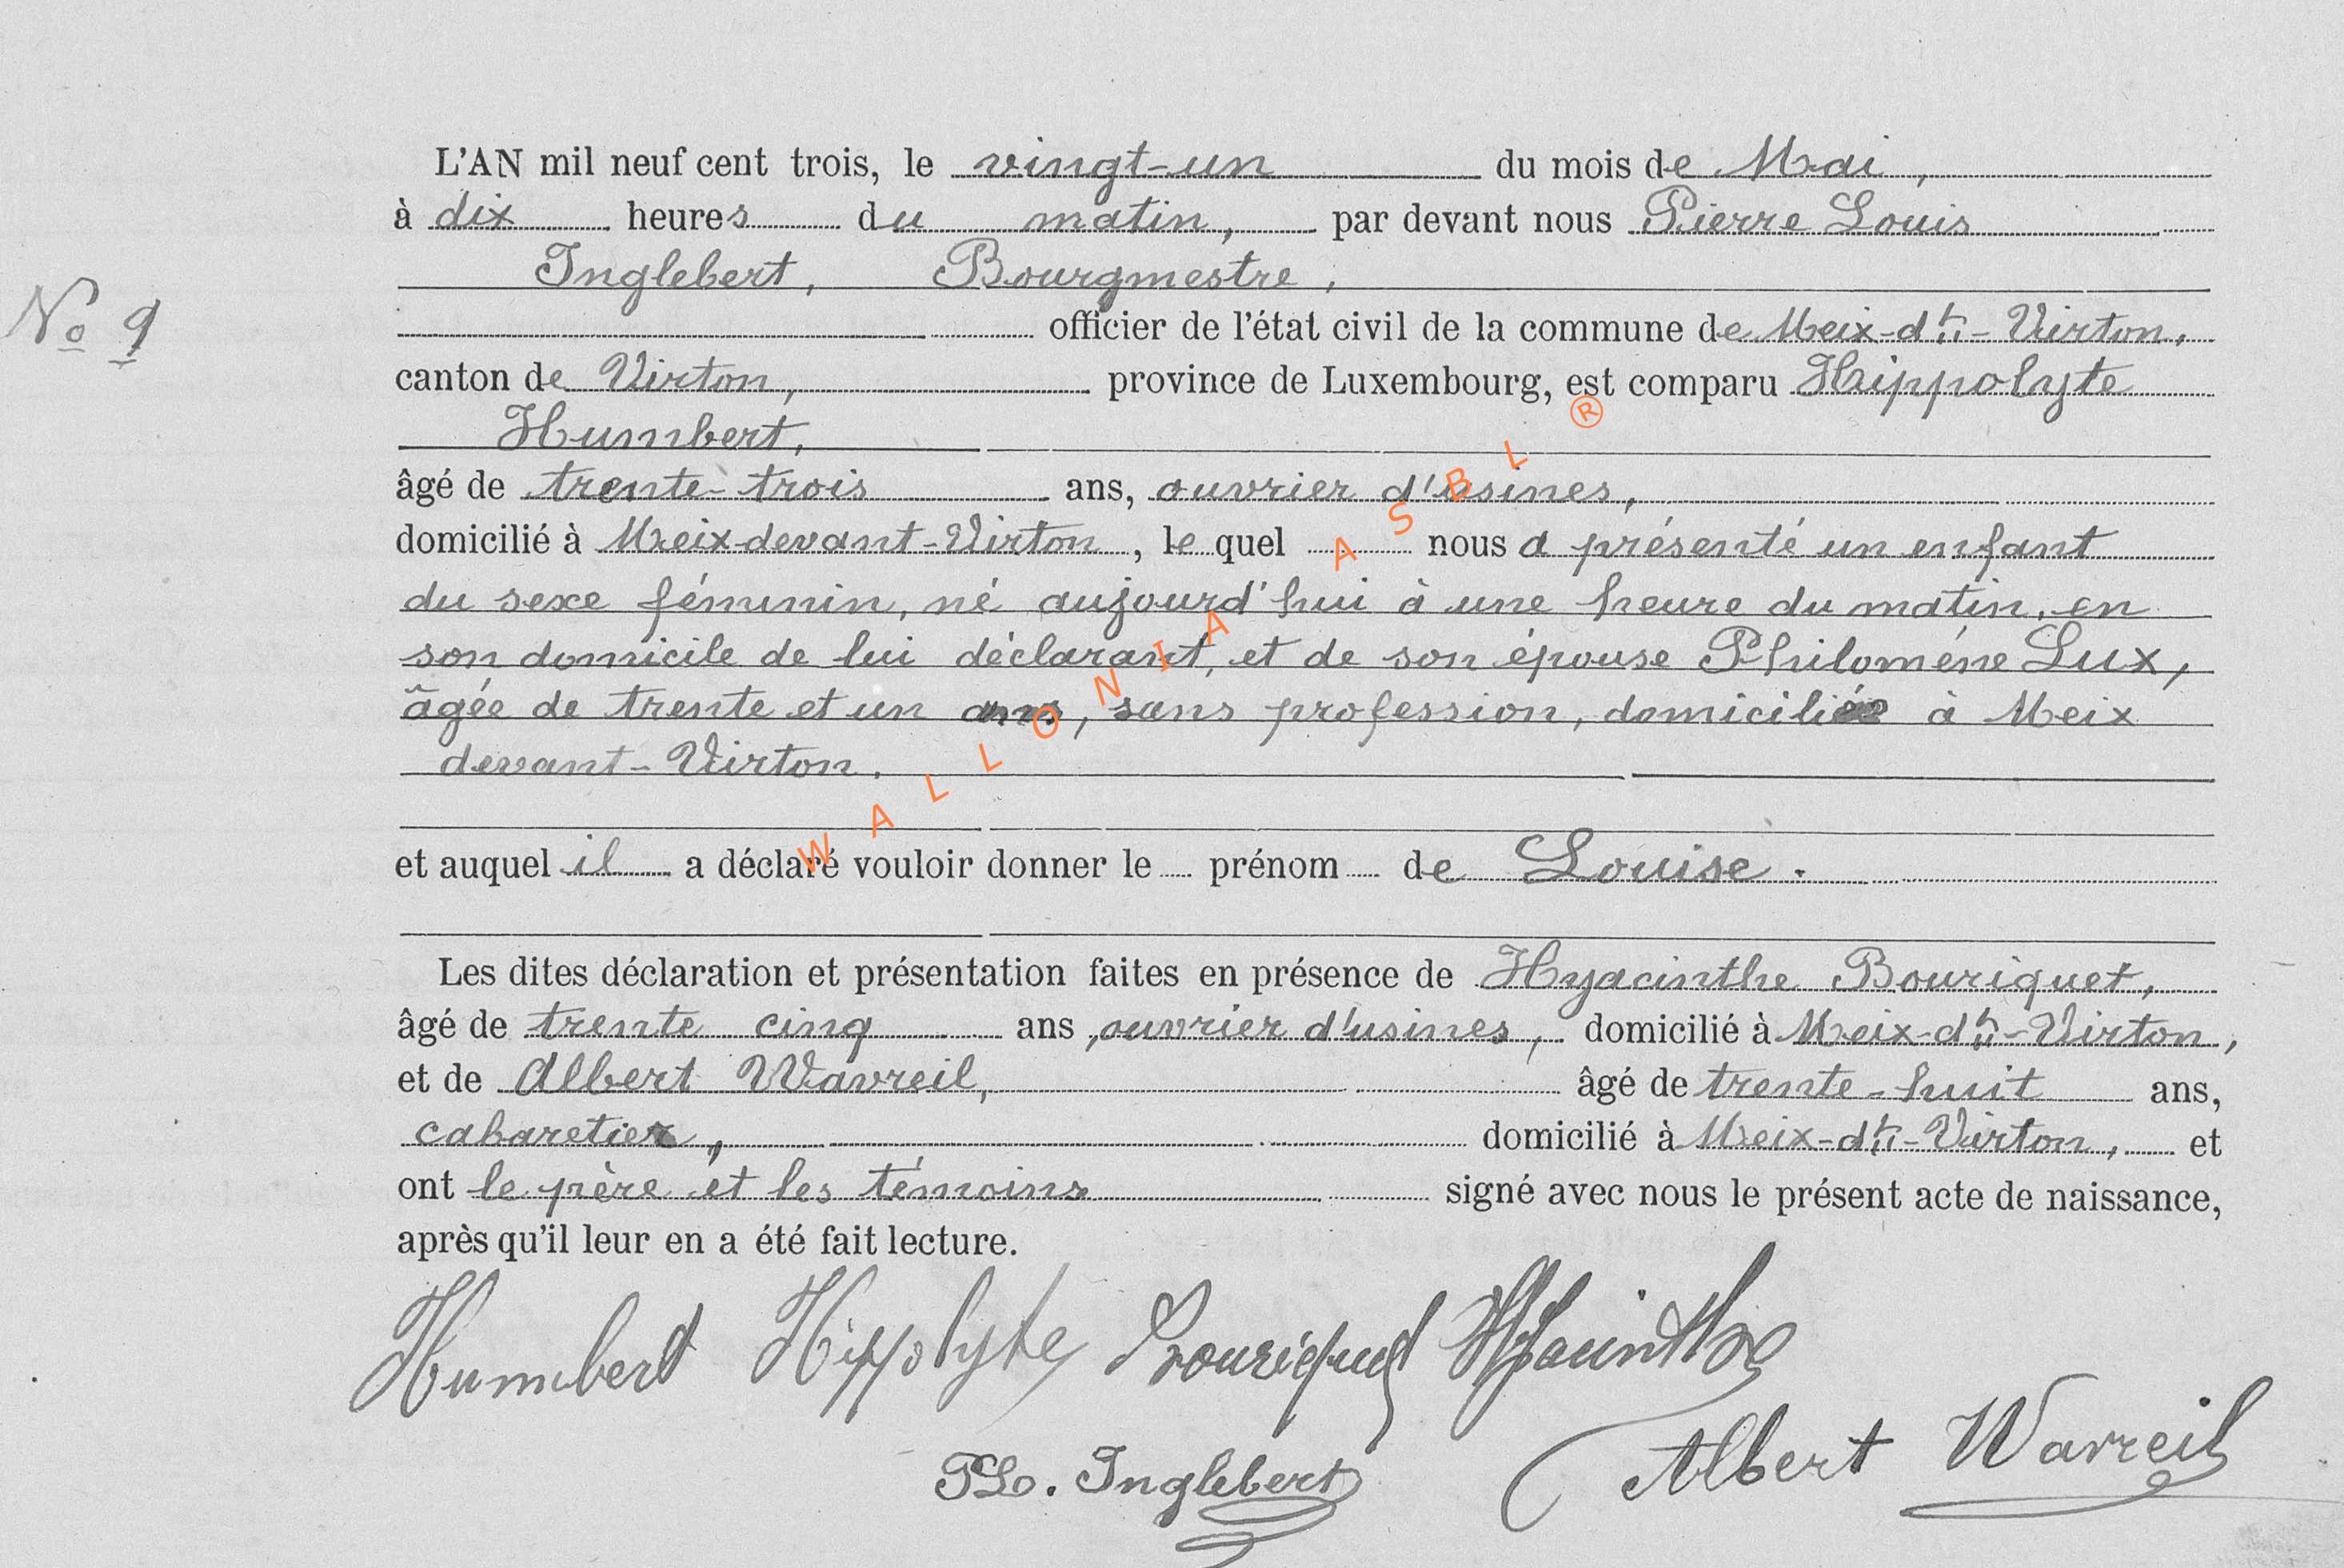 L'AN mil neuf cent trois, le vingt-un du mois de Mai,
à dix heures du matin, par devant nous Pierre Louis
Inglebert, Bourgmestre,
No 9
officier de l'état civil de la commune de Meix-dt-Virton,
canton de Virton, province de Luxembourg, est comparu Hippolyte
Humbert,
âgé de trente-trois ans, ouvrier d'usines,
domicilié à Meix-devant-Virton, le quel nous a présenté un enfant
du sexe féminin, né aujourd'hui à une heure du matin, en
son domicile de lui déclarant, et de son épouse Philomène Lux,
âgée de trente et un ans, sans profession, domiciliée à Meix
devant-Virton.
et auquel il a déclaré vouloir donner le prénom de Louise.
Les dites déclaration et présentation faites en présence de Hyacinthe Bouriquet,
âgé de trente cinq ans, ouvrier d'usines, domicilié à Meix-dt-Virton,
et de Albert Wavreil, âgé de trente-huit ans,
cabaretier, domicilié à Meix-dt-Virton, et
ont le père et les témoins signé avec nous le présent acte de naissance,
après qu'il leur en a été fait lecture.
Humbert Hippolyte Bouriquet Hyacinthe
PL. Inglebert Albert Wavreil
WALLONIA ASBL ®